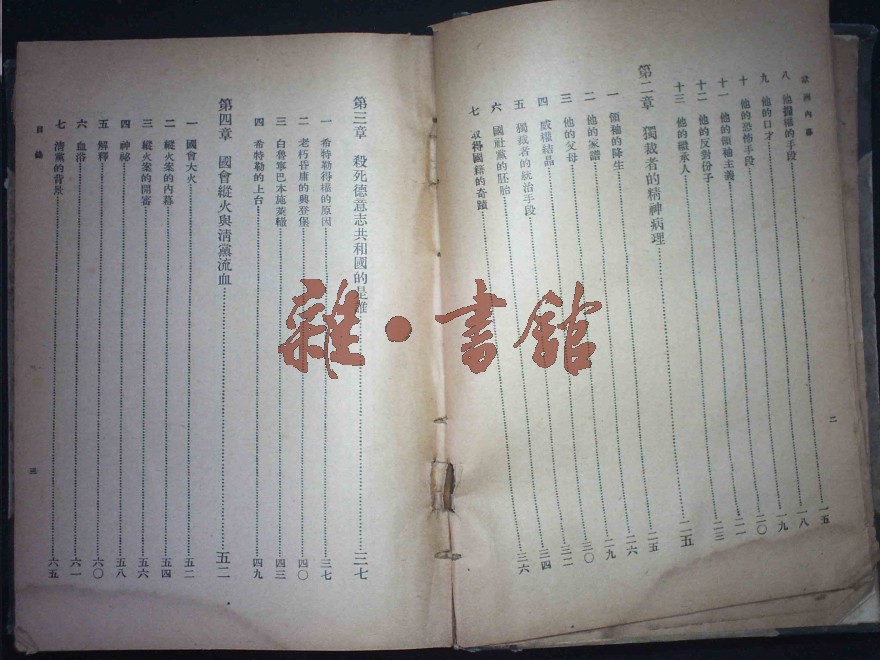 歐洲內幕
八 他攫權的手段……一五
九 他的口才……一八
十 他的恐怖手段……一九
十一 他的領袖主義……二〇
十二 他的反對份子……二一
十三 他的繼承人……二三
第二章 獨裁者的精神病理……二五
一 領袖的降生……二五
二 他的家譜……二六
三 他的父母……二九
四 威權結晶……三〇
五 獨裁者的統治手段……三二
六 國社黨的胚胎……三四
七 取得國籍的奇蹟……三六
二
第三章 殺死德意志共和國的是誰……三七
一 希特勒得權的原因……三七
二 老朽昏庸的興登堡……四〇
三 白魯寧巴本施萊轍……四三
四 希特勒的上台……四九
第四章 國會縱火與清黨流血……五二
一 國會大火……五二
二 縱火案的內幕……五四
三 縱火案的開審……五六
四 神祕……五八
五 解釋……六〇
六 血浴……六一
七 清黨的背景……六五
目錄
三
雜·書館